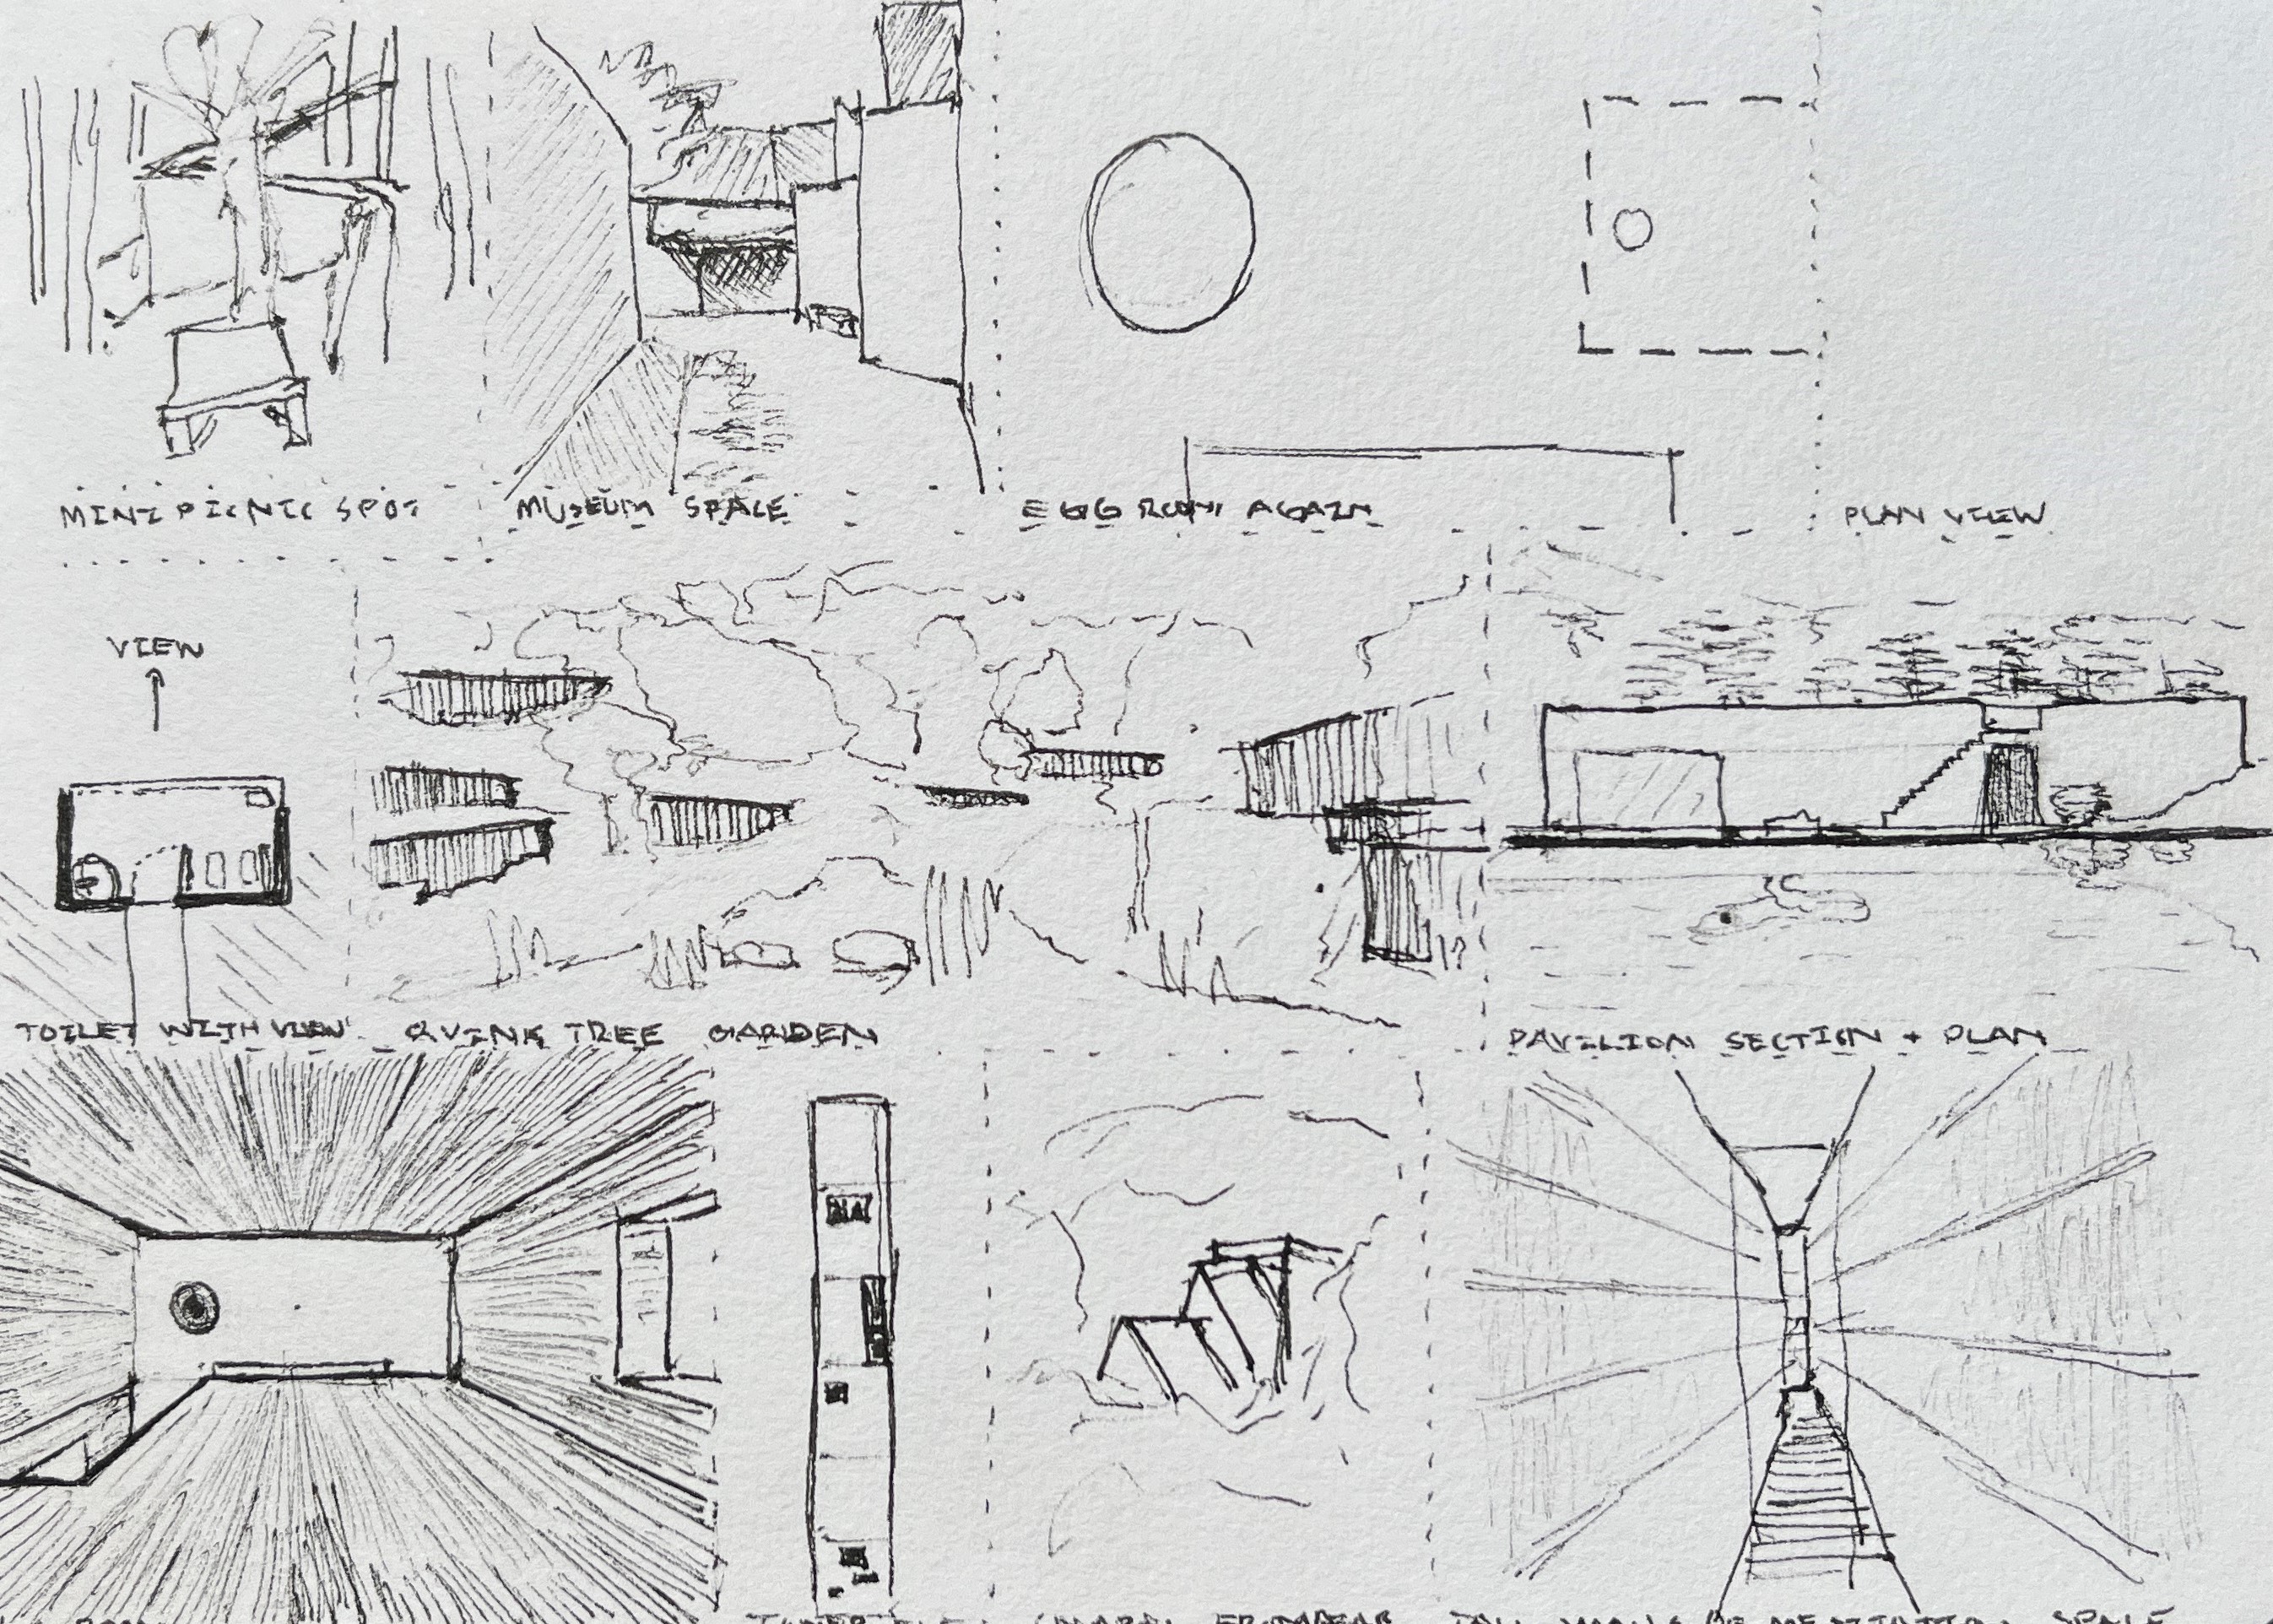 MINI PICNIC SPOT
MUSEUM SPACE
EGG ROOM AGAIN
PLAN VIEW
VIEW
TOILET WITH VIEW
QVINK TREE GARDEN
PAVILION SECTION + PLAN
TALL WALLS OF MEDITATION SPACE